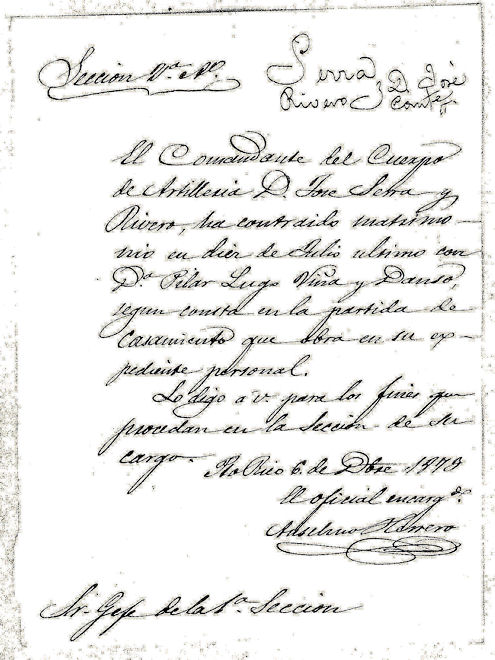 Seccion 4.ª N.º
Serra
Rivero, D. José
Comte
El Comandante del Cuerpo
de Artilleria D. Jose Serra y
Rivero, ha contraido matrimo-
nio en diez de Julio ultimo con
D.ª Pilar Lugo Viña y Danso,
segun consta en la partida de
Casamiento que obra en su ex-
pediente personal.
Lo digo a V. para los fines que
procedan en la Seccion de su
cargo. Pto Rico 6. de Dbre. 1879
El oficial encarg.do
Anselmo Herrero
Sr. Gefe de la 1.ª Seccion